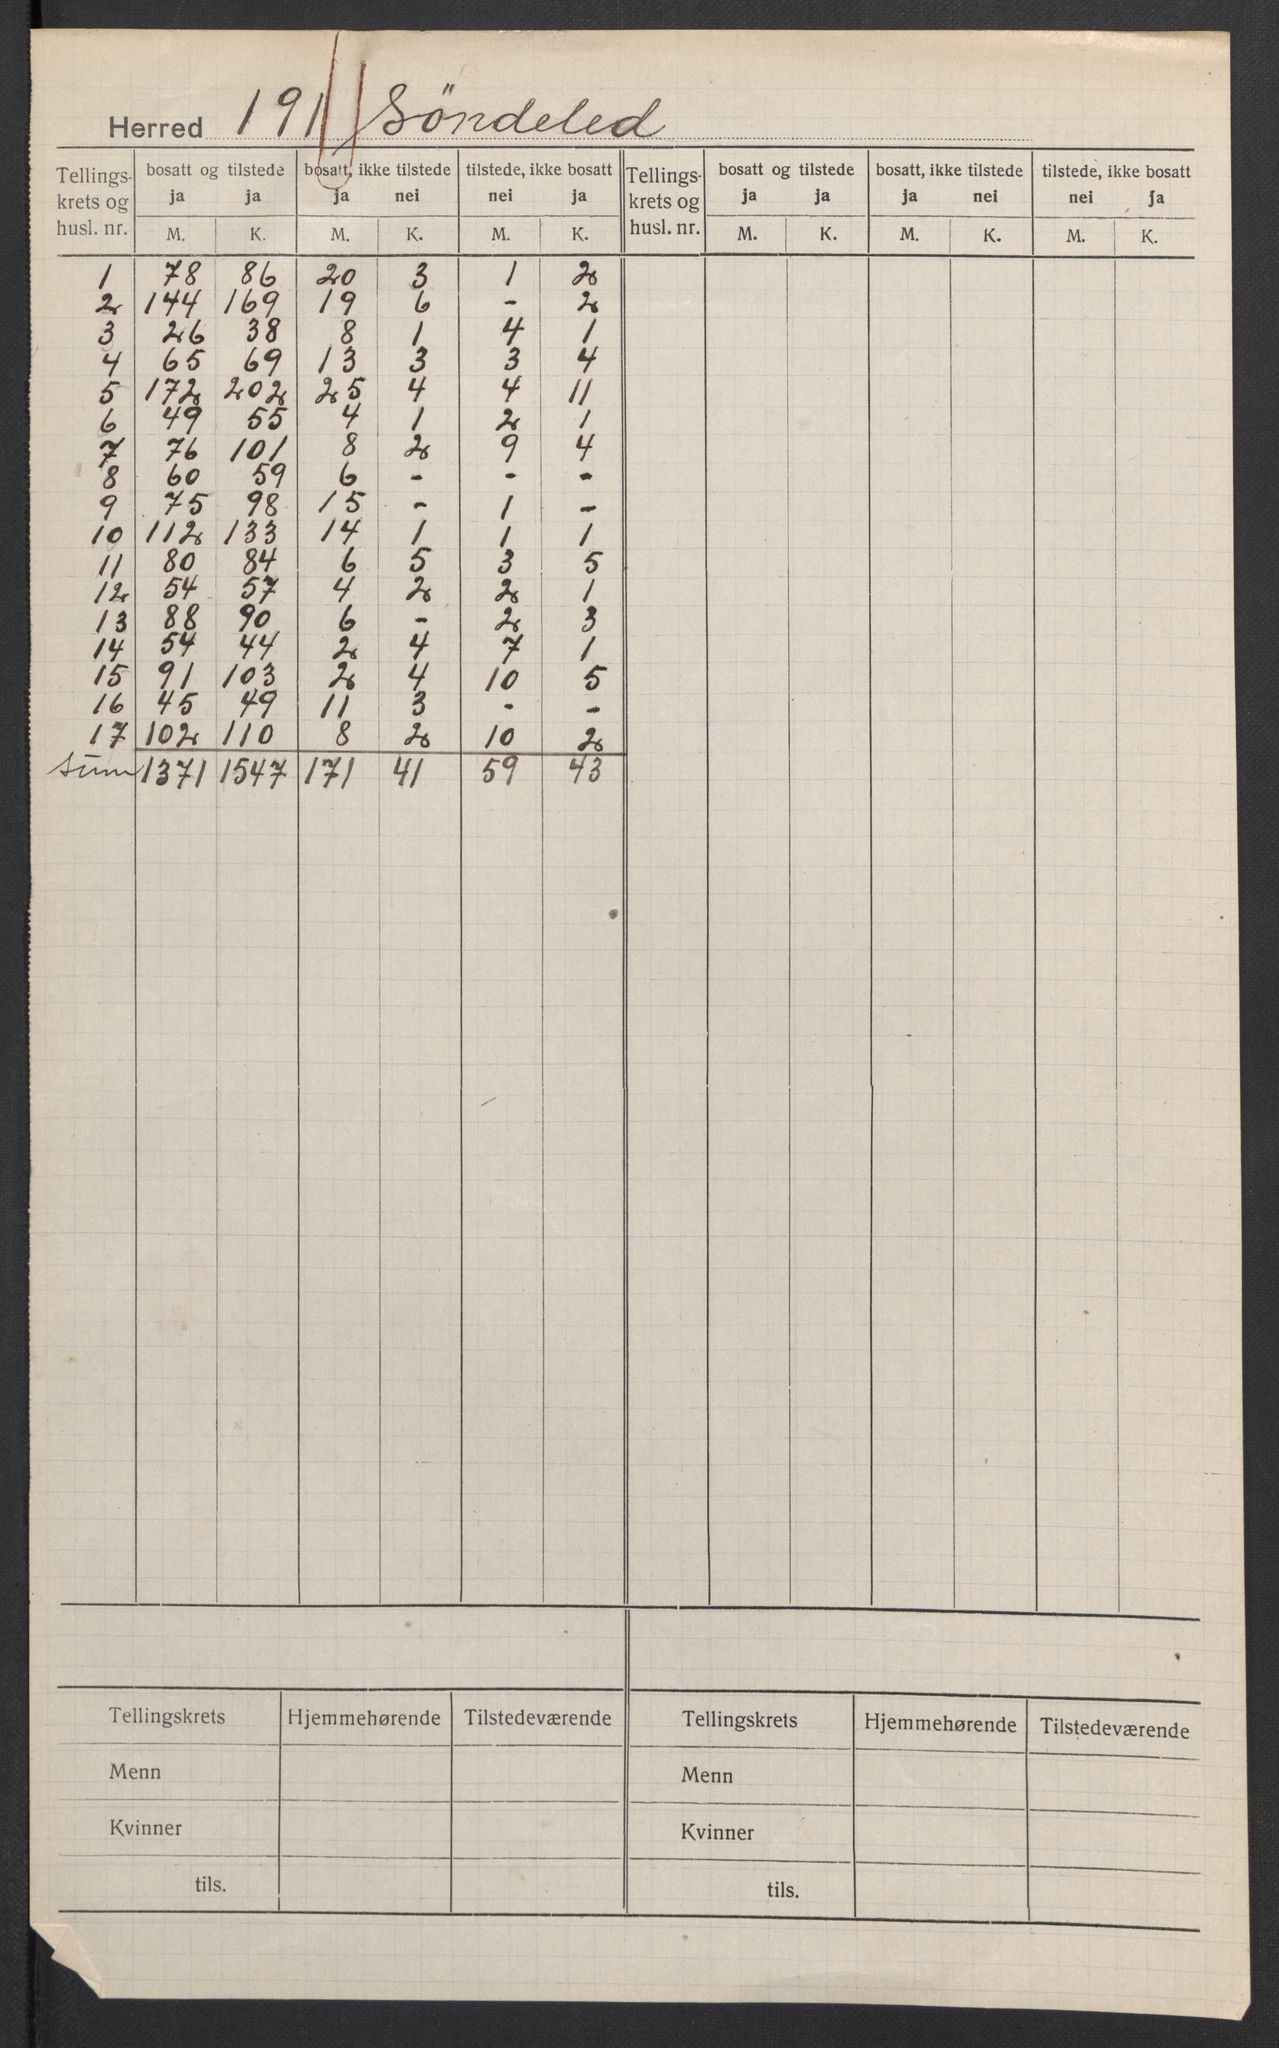 Herred 191 Söndeled
Tellings- krets og husl. nr. | bosatt og tilstede | bosatt, ikke tilstede | tilstede, ikke bosatt | Tellings- krets og husl. nr. | bosatt og tilstede | bosatt, ikke tilstede | tilstede, ikke bosatt
ja ja ja nei nei ja ja ja ja nei nei ja
M. K. M. K. M. K. M. K. M. K. M. K.
1 78 86 20 3 1 2
2 144 169 19 6 - 2
3 26 38 8 1 4 1
4 65 69 13 3 3 4
5 172 202 25 4 4 11
6 49 55 4 1 2 1
7 76 101 8 2 9 4
8 60 59 6 - - -
9 75 98 15 - 1 -
10 112 133 14 1 1 1
11 80 84 6 5 3 5
12 54 57 4 2 2 1
13 88 90 6 - 2 3
14 54 44 2 4 7 1
15 91 103 2 4 10 5
16 45 49 11 3 - -
17 102 110 8 2 10 2
Sum 1371 1547 171 41 59 43
Tellingskrets Hjemmehørende Tilstedeværende Tellingskrets Hjemmehørende Tilstedeværende
Menn Menn
Kvinner Kvinner
tils. tils.